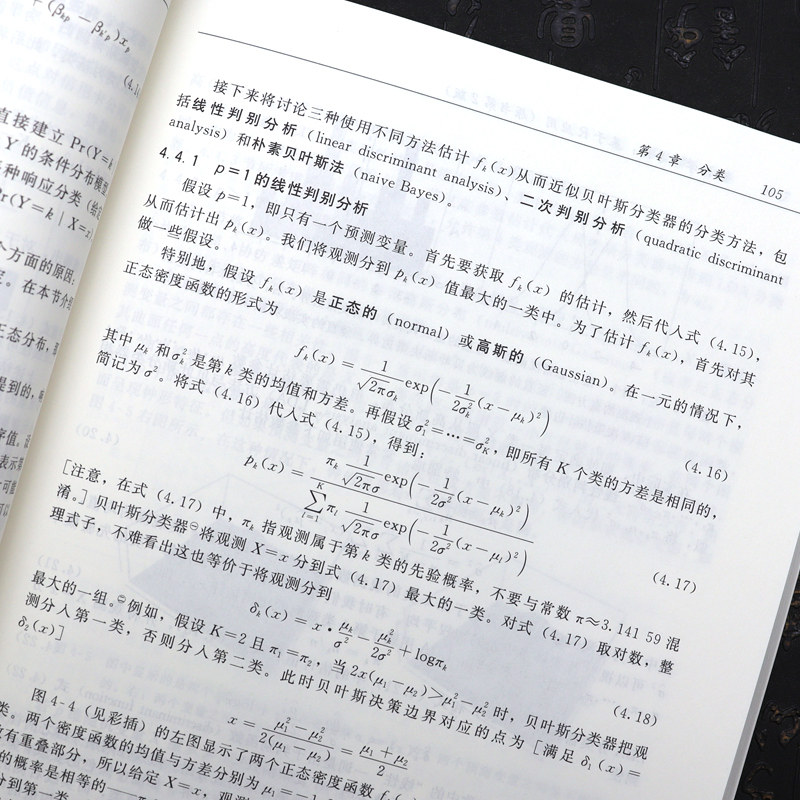 + (β_kp − β_k′p)x_p
(4.1
直接建立 Pr(Y=k
Y 的条件分布模型
种响应分类（给定
Pr(Y=k | X=x)
个方面的原因：
定。在本节介绍
正态分布，
是到的，
第 4 章 分类 105
接下来将讨论三种使用不同方法估计 f_k(x) 从而近似贝叶斯分类器的分类方法，包
括线性判别分析（linear discriminant analysis）、二次判别分析（quadratic discriminant
analysis）和朴素贝叶斯法（naive Bayes）。
4.4.1 p=1 的线性判别分析
假设 p=1，即只有一个预测变量。首先要获取 f_k(x) 的估计，然后代入式（4.15），
从而估计出 p_k(x)。我们将观测分到 p_k(x) 值最大的一类中。为了估计 f_k(x)，首先对其
做一些假设。
特别地，假设 f_k(x) 是正态的（normal）或高斯的（Gaussian）。在一元的情况下，
正态密度函数的形式为
f_k(x) = 1/(√2πσ_k) exp(−1/(2σ_k²)(x−μ_k)²) (4.16)
其中 μ_k 和 σ_k² 是第 k 类的均值和方差。再假设 σ_1²=…=σ_K²，即所有 K 个类的方差是相同的，
简记为 σ²。将式（4.16）代人式（4.15），得到：
p_k(x) = π_k 1/(√2πσ) exp(−1/(2σ²)(x−μ_k)²) / ∑_{l=1}^{K} π_l 1/(√2πσ) exp(−1/(2σ²)(x−μ_l)²) (4.17)
［注意，在式（4.17）中，π_k 指观测属于第 k 类的先验概率，不要与常数 π≈3.141 59 混
淆。］贝叶斯分类器⊖将观测 X=x 分到式（4.17）最大的一类。对式（4.17）取对数，整
理式子，不难看出这也等价于将观测分到
δ_k(x) = x • μ_k/σ² − μ_k²/(2σ²) + logπ_k (4.18)
最大的一组。⊖例如，假设 K=2 且 π_1=π_2，当 2x(μ_1−μ_2)>μ_1²−μ_2² 时，贝叶斯分类器把观
测分人第一类，否则分入第二类。此时贝叶斯决策边界对应的点为［满足 δ_1(x)=
δ_2(x)］
x = (μ_1²−μ_2²)/(2(μ_1−μ_2)) = (μ_1+μ_2)/2
图 4-4（见彩插）的左图显示了两个正态密度函数
类。两个密度函数的均值与方差分别为 μ_1=−1.
有重叠部分，所以给定 X=x，观
的概率是相等的——
分到第一类